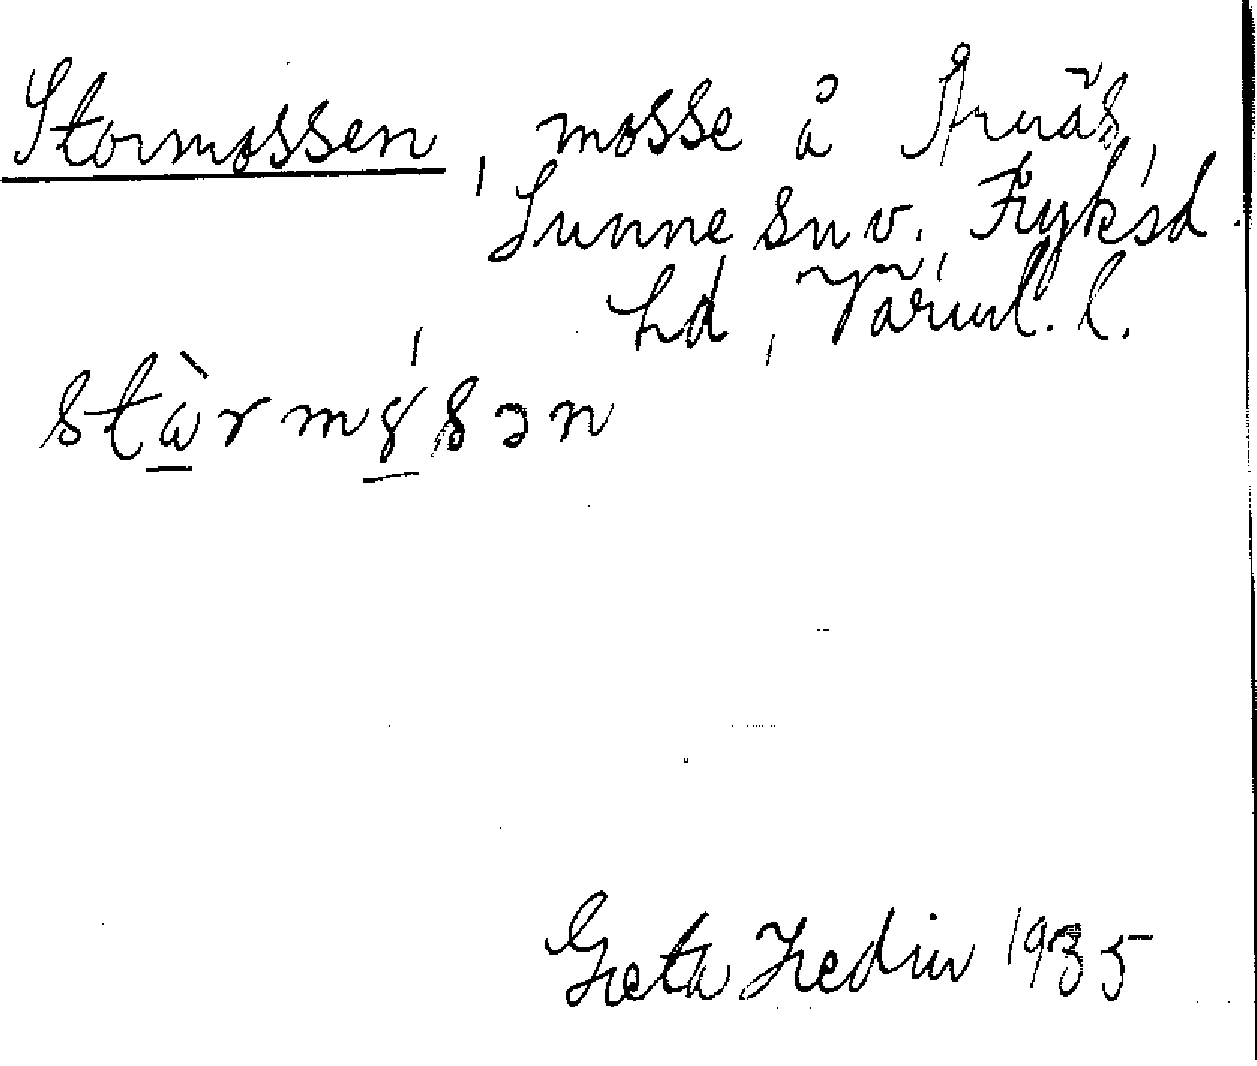 Stormossen, mosse å Årnäs,
Sunne sn v. Fryksd.
hd, Värml. l.
stὰrmǿsən
Greta Hedin 1935